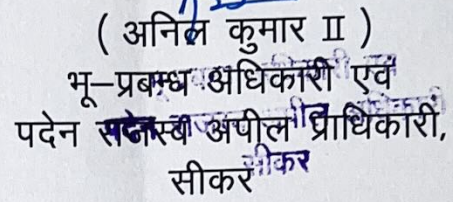 ( अनिल कुमार II )
भू-प्रबन्ध अधिकारी एवं
पदेन राजस्व अपील प्राधिकारी,
सीकर
सीकर